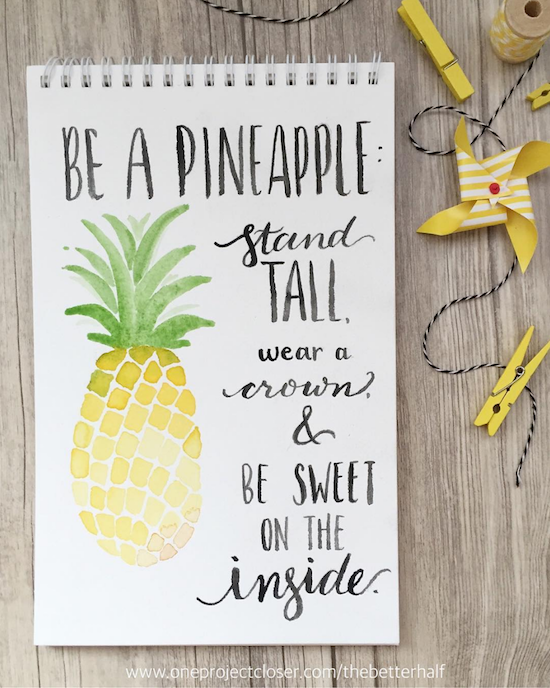 BE A PINEAPPLE:
stand
TALL,
wear a
crown,
&
BE SWEET
ON THE
inside.
www.oneprojectcloser.com/thebetterhalf